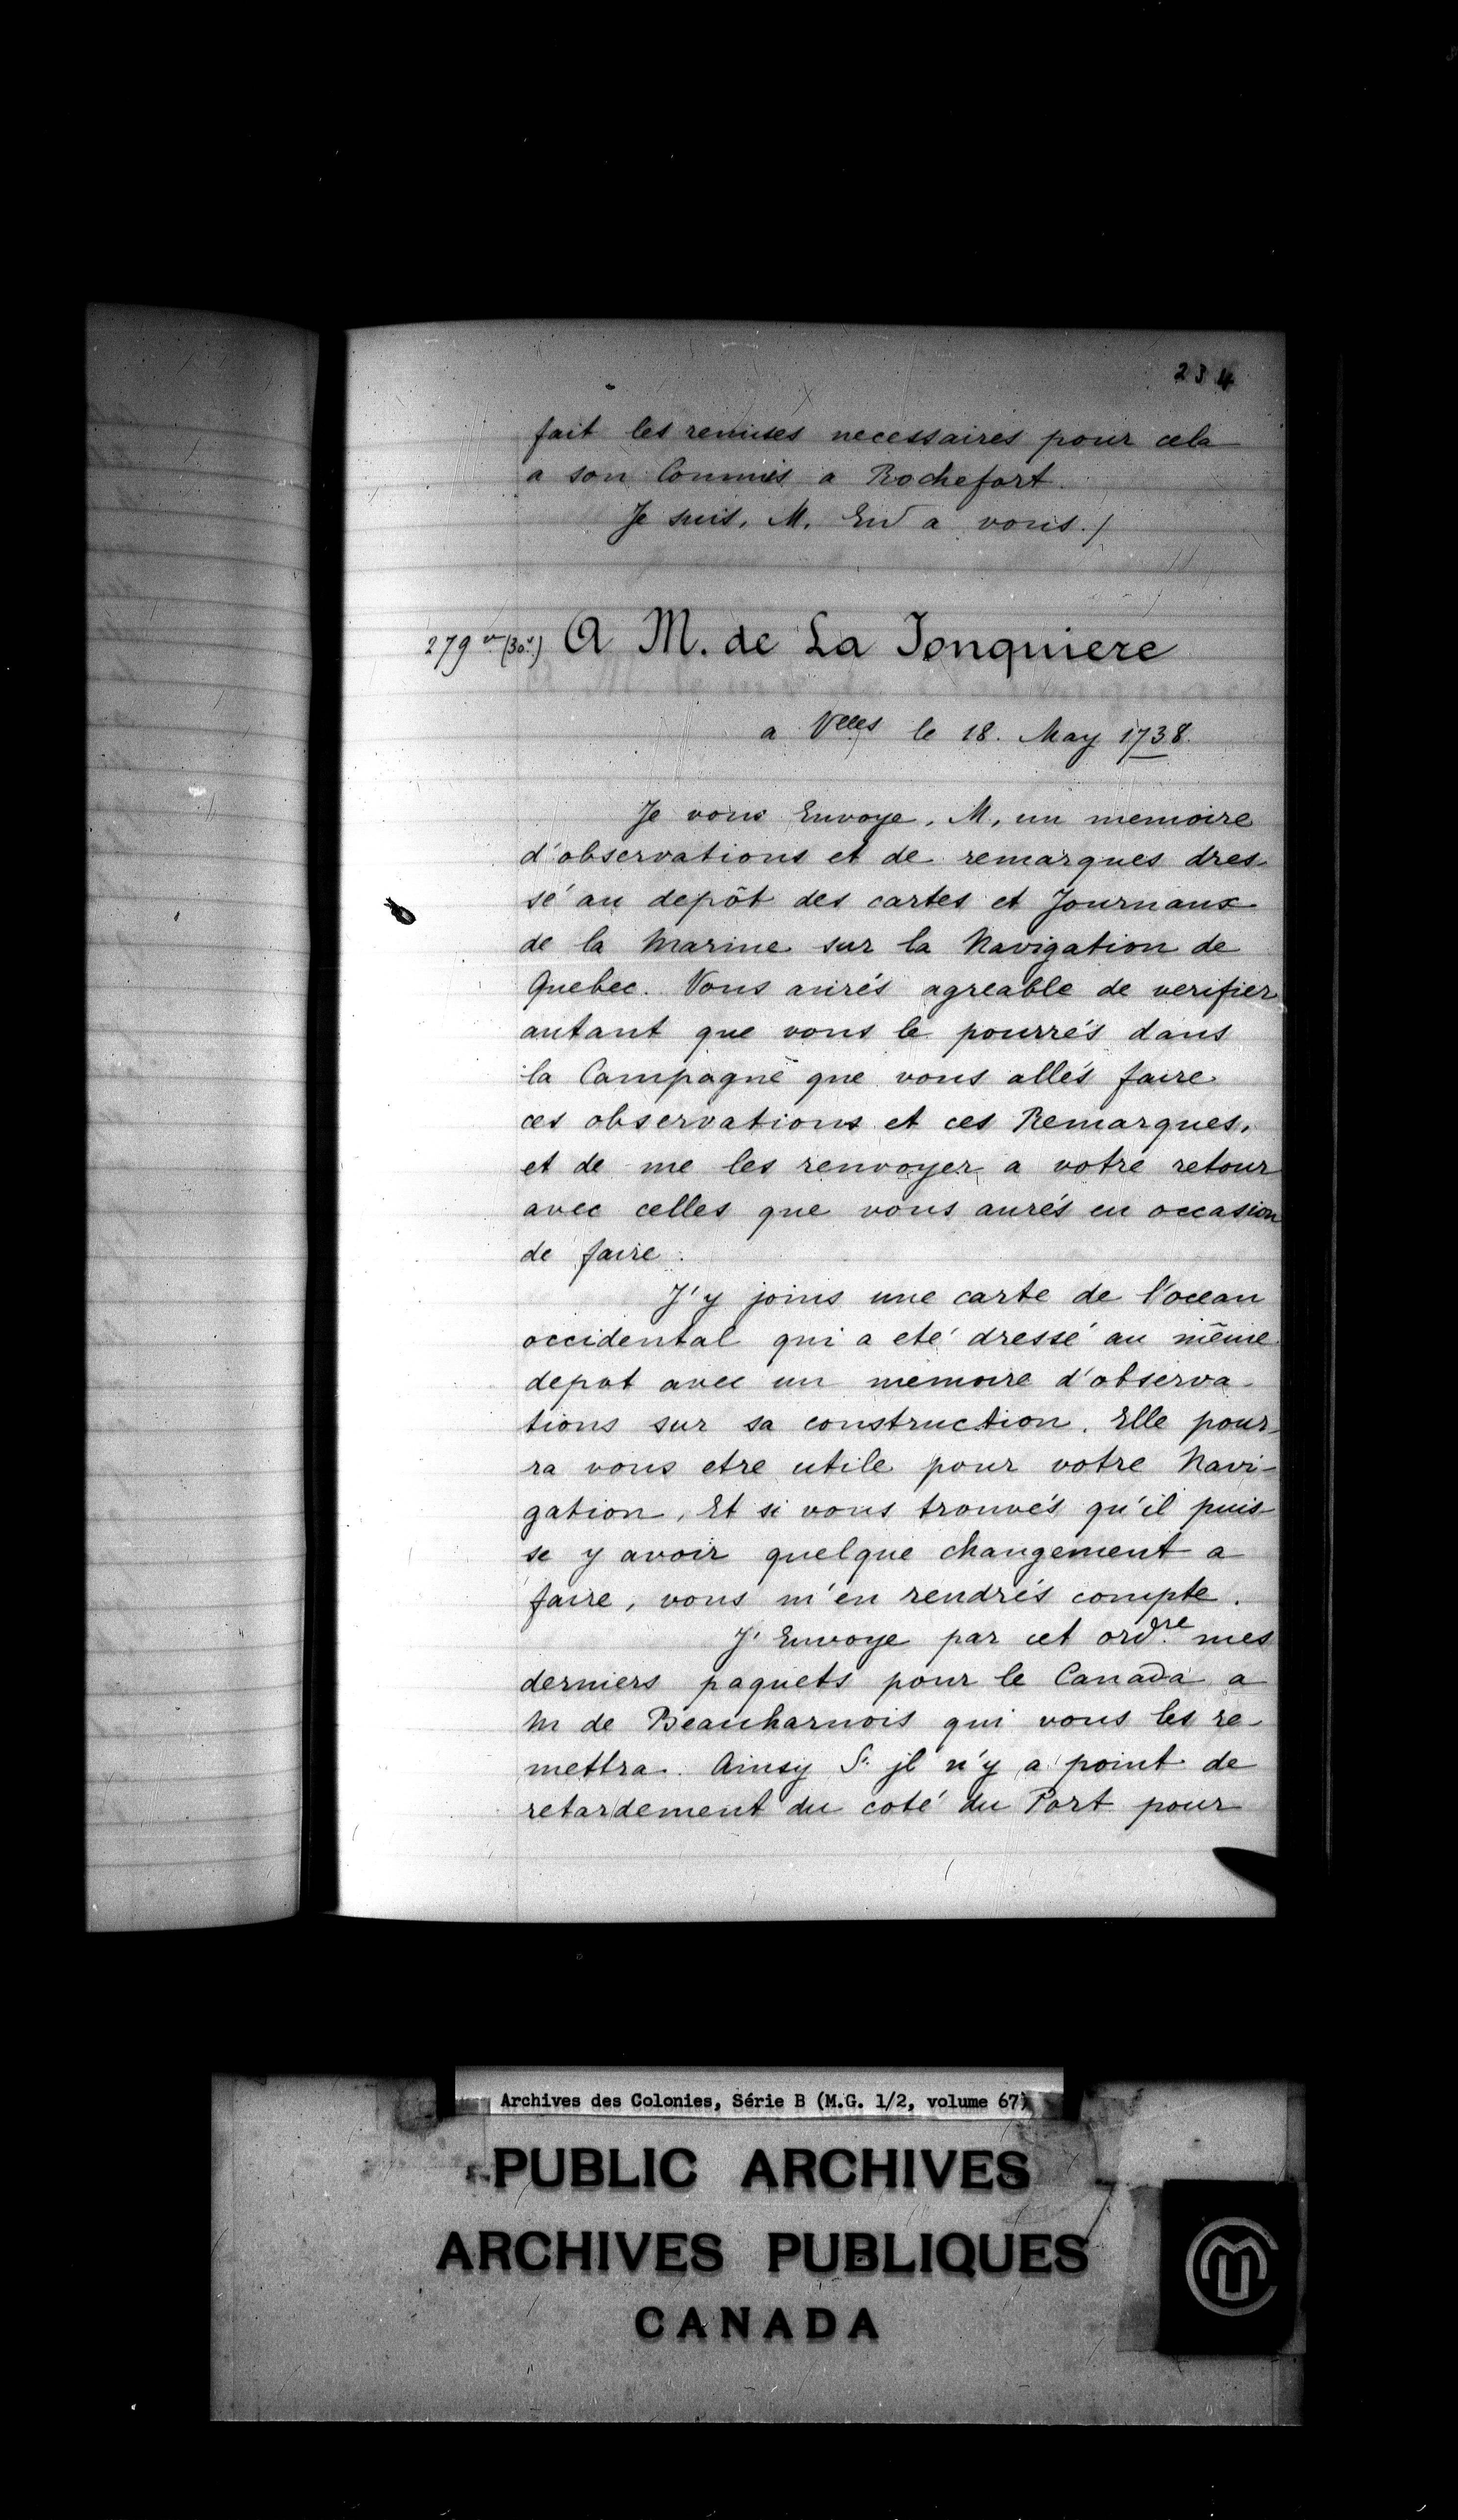 234
fait les remises necessaires pour cela
a son Commis a Rochefort.
Je suis, M. Ent a vous./
279 v (30 v.) A M. de La Jonquiere
a Vlles le 18. May 1738.
Je vous Envoye, M, un memoire
d'observations et de remarques dres-
sé au depôt des cartes et Journaux
de la Marine sur la Navigation de
Quebec. Vous aurés agreable de verifier
autant que vous le pourrés dans
la Campagne que vous allés faire
ces observations et ces Remarques,
et de me les renvoyer a votre retour
avec celles que vous aurés eu occasion
de faire.
J'y joins une carte de l'ocean
occidental qui a eté dressé au même
depot avec un memoire d'observa-
tions sur sa construction. Elle pour-
ra vous etre utile pour votre Navi-
gation, Et si vous trouvés qu'il puis-
se y avoir quelque changement a
faire, vous m'en rendrés compte.
J'Envoye par cet ord.re mes
derniers paquets pour le Canada a
M de Beauharnois qui vous les re-
mettra. Ainsy S. jl n'y a point de
retardement du coté du Port pour
Archives des Colonies, Série B (M.G. 1/2, volume 67)
PUBLIC ARCHIVES
ARCHIVES PUBLIQUES
CANADA